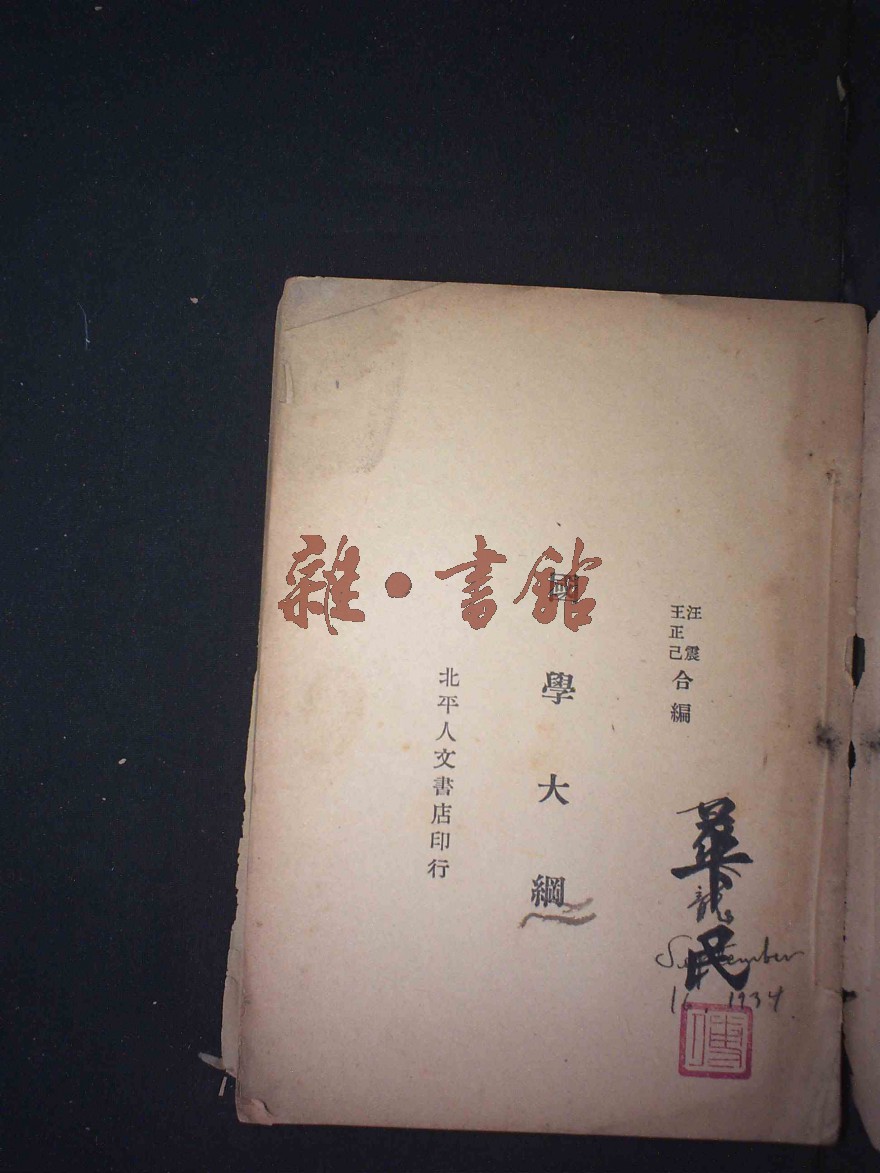 汪震
王正己
合編
國學大綱
北平人文書店印行
雜·書館
民
September
16, 1934